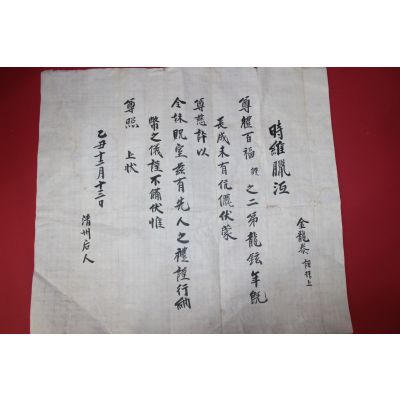 金龍泰 拜上
時維臘沍
尊體百福 之二弟龍鉉年旣
長成未有伉儷伏蒙
尊慈許以
令妹貺室玆有先人之禮謹行納
幣之儀謹不備伏惟
尊照 上狀
乙丑十二月十三日
清州后人